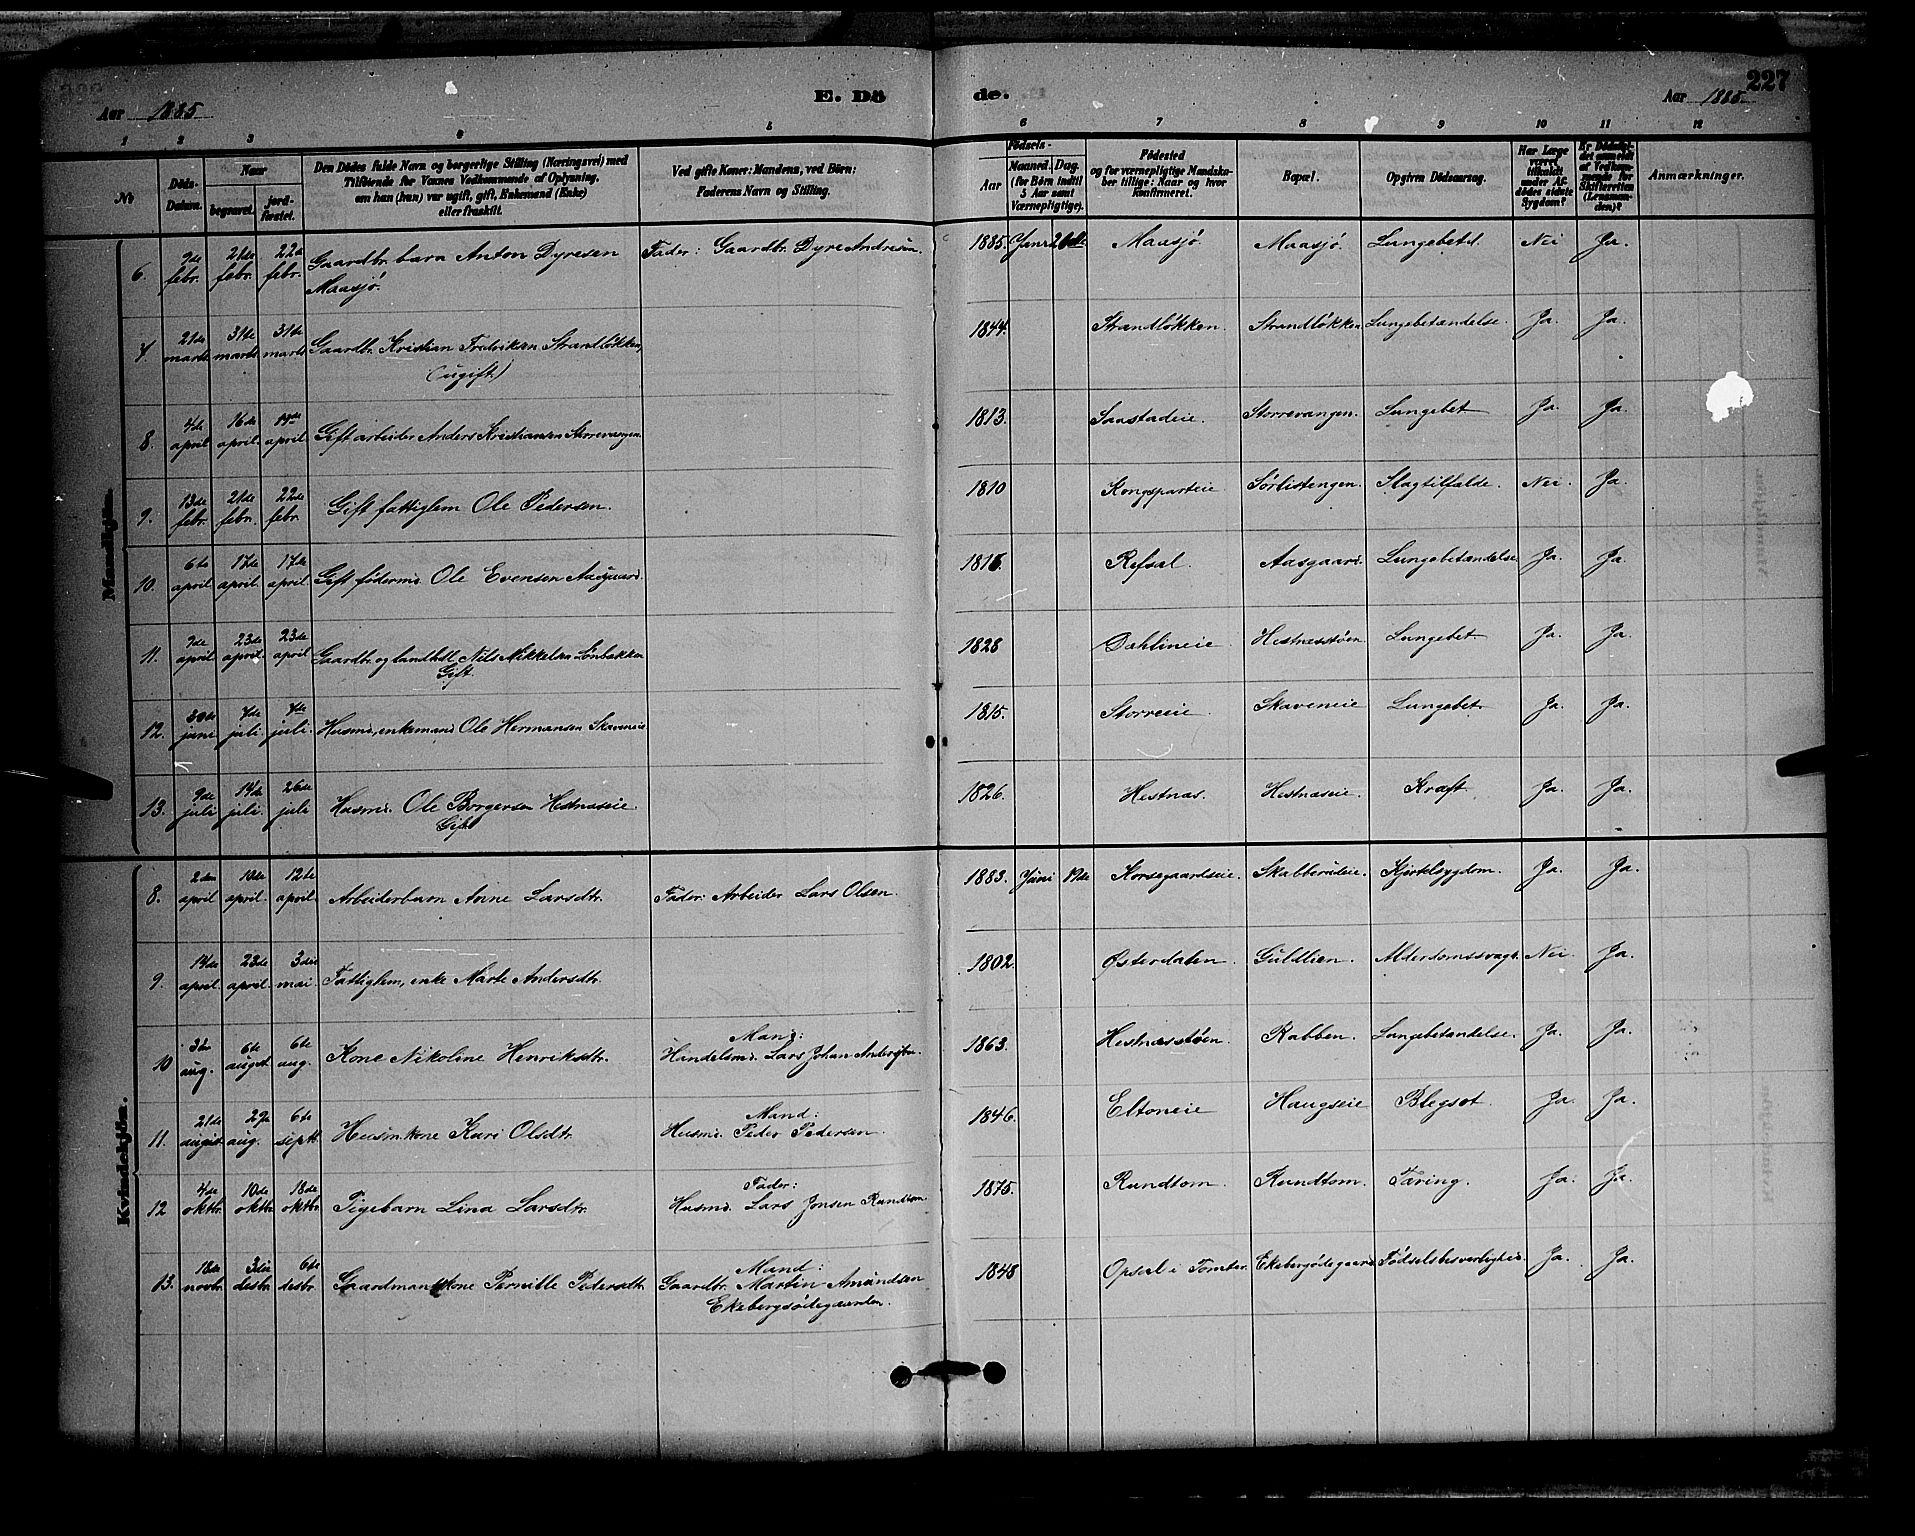 227
Aar 1885.
E. Dö de.
Aar 1885.
1 2 3 5 6 6 7 8 9 10 11 12
No
Døds-Datum.
Naar
begravet.
jord-fæstet.
Den Dödes fulde Navn og borgerlige Stilling (Næringsvei) med
Tilföiende for Voxnes Vedkommende af Oplysning,
om han (hun) var ugift, gift, Enkemand (Enke)
eller fraskilt.
Ved gifte Koner: Mandens, ved Börn:
Faderens Navn og Stilling.
Födsels-
Aar
Maaned. Dag.
(for Börn indtil
5 Aar samt
Værnepligtige).
Födested
og for værnepligtige Mandska-
ber tillige: Naar og hvor
konfirmeret.
Bopæl.
Opgiven Dödsaarsag.
Har Læge
været
tilkaldt
under Af-
dödes sidste
Sygdom?
Er Dödsfal-
det anmeldt
af Vedkom-
mende for
Skifteretten
(Lensman-
den)?
Anmærkninger.
Mandkjön.
6. 9de febr. 21de febr. 22de febr. Gaardbr. barn Anton Dyresen Maasjø. Fader: Gaardbr. Dyre Andresen. 1885. Janr. Maasjø. Maasjø. Lungebetd. Nei Ja.
7. 21de marts 31de marts 31de marts Gaardbr. Kristian Fredriksen Strandløkken, (ugift.) 1844. Strandløkken. Strandløkken Lungebetændelse. Ja. Ja.
8. 4de april 16de april. april. Gift arbeider Anders Kristiansen Storrevangen. 1813. Saastadeie. Storrevangen. Lungebet. Ja. Ja.
9. 13de febr. 21de febr. 22de febr. Gift fattiglem Ole Pedersen. 1810 Kongsparteie Sørlistengen. Slagtilfælde. Nei. Ja.
10. 6te april 17de april. 17de april. Gift føderm. Ole Evensen Aasgaard. Refsal. Aasgaard. Lungebetændelse. Ja. Ja.
11. 9de april 23de april. 23de april Gaardbr. og landhdl. Nils Mikkelsen Lønbakken Gift. 1828 Dahlineie Hestnæsstøen. Lungebet. Ja. Ja.
12. 30de juni 7de juli. 7de juli. Husmd., enkemand Ole Hermansen Skaveneie 1815. Storreie. Skaveneie Lungebet. Ja. Ja.
13. 9de juli 14de juli. 26de juli Husmd. Ole Borgersen Hestnæseie. Gift 1826. Hestnæs. Hestnæseie. Kræft. Ja. Ja.
Kvindekjön.
8. 2den april 10de april. 12te april. Arbeiderbarn Anne Larsdtr. Fader: Arbeider Lars Olsen. 1883. Juni 19de Korsegaardseie. Skabberudeie. Kjertelsygdom. Ja. Ja.
9. 14de april. 23de april. 3die mai. Fattiglem, enke Marte Andersdtr. 1802. Østerdalen. Guldlien. Alderdomssvagh. Nei. Ja.
10 3die aug. 6te august 6te aug. Kone Nikoline Henriksdtr. Mand: Handelsmd. Lars Johan Andersen. 1863. Hestnæsstøen. Rabben. Lungebetændelse. Ja. Ja.
11. 21de august aug. 6te septr. Husm.kone Kari Olsdtr. Mand: Husmd. Peder Pedersen. 1846. Eltoneie Haugseie Blegsot. Ja. Ja.
12 4de oktbr. 10de oktbr. 18de oktbr. Pigebarn Lina Larsdtr. Fader: Husmd. Lars Jonsen Rundtom. 1875. Rundtom. Rundtom. Tæring. Ja. Ja.
13. 18de novbr. 3die desbr. 6te desbr. Gaardmandskone Pernille Pedersdtr. Mand: Gaardbr. Martin Amundsen Ekebergsødegaarden. 1848 Opsal i Tomter. Ekebergsødegaard Fødselsbesværlighed. Ja. Ja.